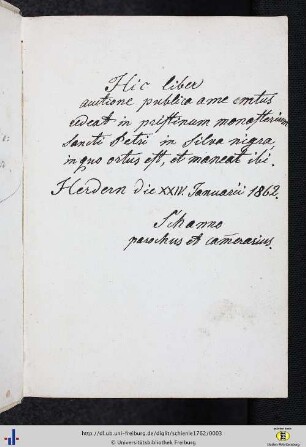 Hic liber
auctione publica a me emtus
redeat in pristinum monasterium
Sancti Petri in Silva nigra,
in quo ortus est, et maneat ibi.
Herdern die XXIV. Januarii 1862.
Schanno
parochus et camerarius.
http://dl.ub.uni-freiburg.de/diglit/schienle1762/0003
© Universitätsbibliothek Freiburg